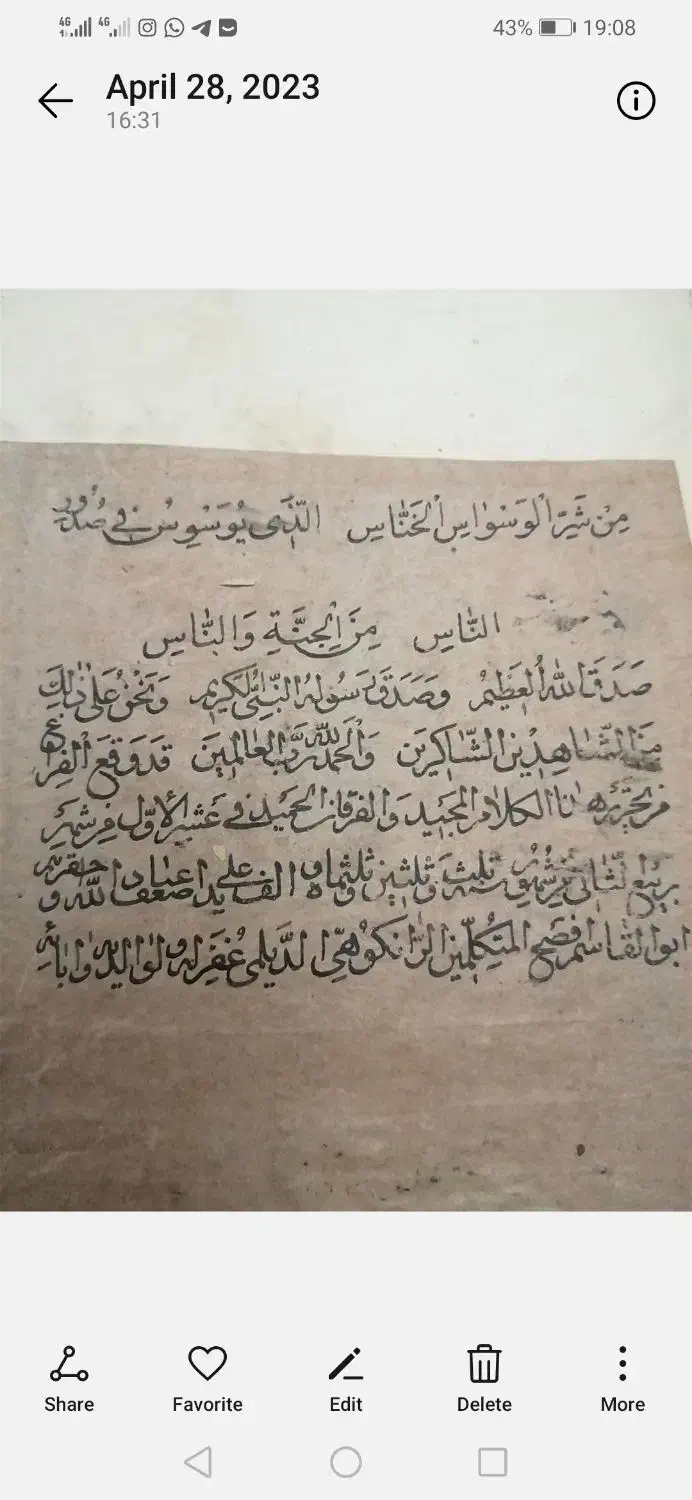 4G 4G 43% 19:08
April 28, 2023
16:31
مِنْ شَرِّ الْوَسْوَاسِ الْخَنَّاسِ الَّذِي يُوَسْوِسُ فِي صُدُورِ
النَّاسِ مِنَ الْجِنَّةِ وَالنَّاسِ
صَدَقَ اللهُ الْعَظِيمُ وَصَدَقَ رَسُولُهُ النَّبِيُّ الْكَرِيمِ وَنَحْنُ عَلَى ذٰلِكَ
مِنَ الشَّاهِدِينَ الشَّاكِرِينَ وَالْحَمْدُ لِلّٰهِ رَبِّ الْعَالَمِينَ قَدْ وَقَعَ الْفِرَاغ
من تحرير هذا الكلام المجيد والفرقان الحميد في عشر الأول من شهر
ربيع الثاني من شهور سنة ثلث وثلثين وثلثمأة الف على يد اضعف عباد الله
ابوالقاسم فصيح المتكلمين الرانكوهى الديلمى غفر له ولوالديه
Share Favorite Edit Delete More